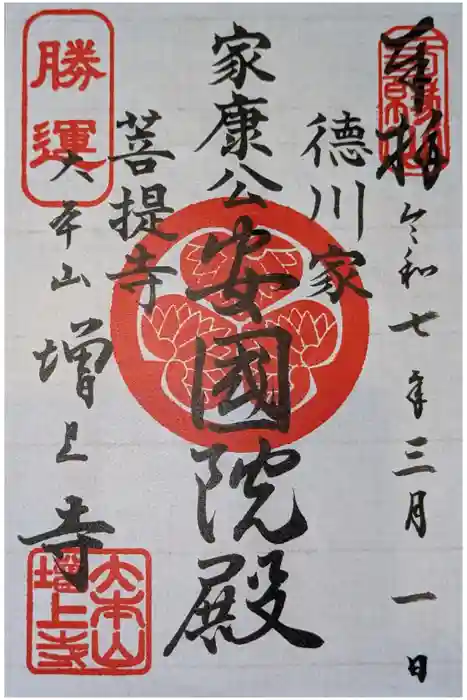 奉拝
令和七年三月一日
徳川家
家康公
安國院殿
菩提寺
勝運
大本山
増上寺
大本山
増上寺